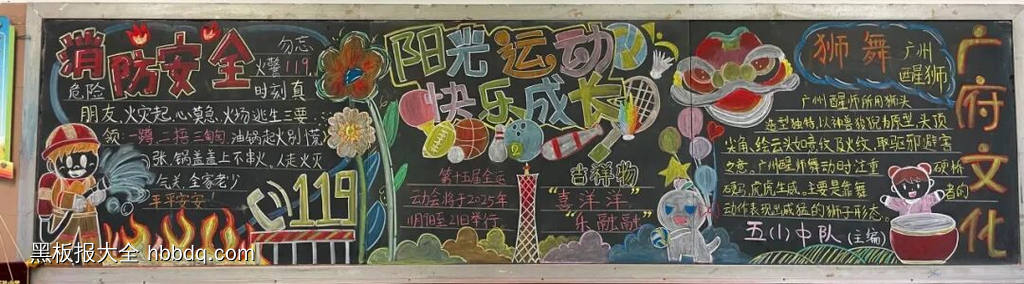 消防安全
勿忘
火警119,
危险
时刻真
朋友,火灾起,心莫急,火场逃生三要
领:一蹲二捂三匍匐,油锅起火别慌
张,锅盖盖上不串火,人走火灭
气关,全家老少
平平安安!
119
阳光运动
快乐成长
第十五届全运
动会将于2025年
11月9日至21日举行
吉祥物
"喜洋洋"
"乐融融"
狮舞
广州
醒狮
广州醒狮所用狮头
造型独特,以神兽狻猊为原型,头顶
尖角,绘云状喷纹及火纹,取驱邪避害
之意。广州醒狮舞动时注重硬桥
硬马,虎虎生威,主要是靠舞者的
动作表现出威猛的狮子形态。
五(1)中队(主编)
广府文化
黑板报大全 hbbdq.com